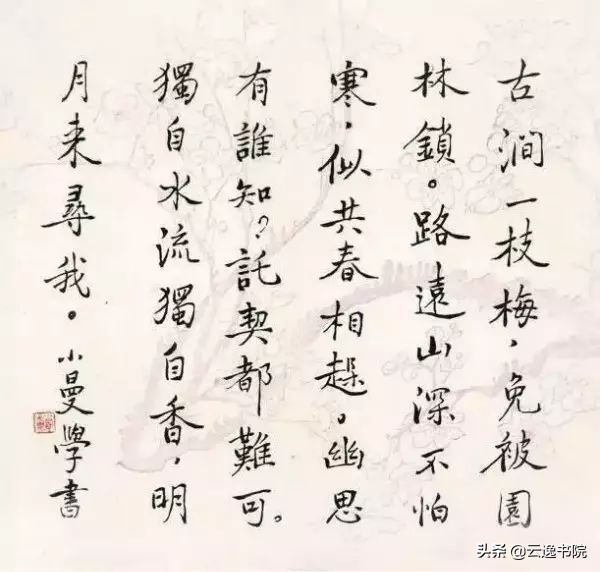 古澗一枝梅，免被園
林鎖。路遠山深不怕
寒，似共春相趓。幽思
有誰知？託契都難可。
獨自水流獨自香，明
月来尋我。小曼學書
头条 @云逸书院